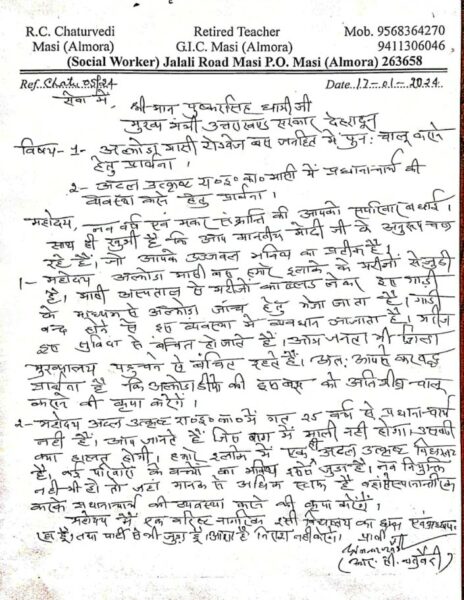 R.C. Chaturvedi Retired Teacher Mob. 9568364270
Masi (Almora) G.I.C. Masi (Almora) 9411306046
(Social Worker) Jalali Road Masi P.O. Masi (Almora) 263658
Ref. Chatu 05/24 Date 17-01-2024
सेवा में,
श्रीमान पुष्कर सिंह धामी जी
मुख्य मंत्री उत्तराखण्ड सरकार देहरादून
विषय- 1- अल्मोड़ा मासी रोडवेज बस जनहित में पुनः चालू करने
हेतु प्रार्थना।
2- अटल उत्कृष्ट रा०इ०का० मासी में प्रधानाचार्य की
व्यवस्था करने हेतु प्रार्थना।
महोदय, नव वर्ष एवं मकर संक्रान्ति की आपको सपरिवार बधाई।
साथ ही खुशी है कि आप माननीय मोदी जी के अनुरूप चल
रहे हैं। जो आपके उज्जवल भविष्य का प्रतीक है।
1- महोदय अल्मोड़ा मासी बस हमारे इलाके के मरीजों से जुड़ी
है। मासी अस्पताल से मरीजों का ब्लड लेकर इस गाड़ी
के माध्यम से अल्मोड़ा जाँच हेतु भेजा जाता है। गाड़ी
बन्द होने से इस व्यवस्था में व्यवधान आ जाता है। मरीज
इस सुविधा से वंचित हो जाते हैं। आम जनता भी जिला
मुख्यालय पहुचने से वंचित रहते हैं। अतः आपसे करबद्ध
प्रार्थना है कि अल्मोड़ा डीपो की इस बस को अतिशीघ्र चालू
कराने की कृपा करेंगे।
2- महोदय अटल उत्कृष्ट रा०इ०का० में गत 25 वर्ष से प्रधानाचार्य
नहीं हैं। आप जानते हैं जिस बाग में माली नहीं होगा उसकी
क्या हालत होगी। हमारे इलाके में एक अटल उत्कृष्ट विद्यालय
है, कई परिवारों के बच्चों का भविष्य इससे जुड़ा है। नव नियुक्ति
नहीं भी हो तो जहां मानक से अधिक स्टाफ है वहां से स्थानान्तरित
करके प्रधानाचार्य की व्यवस्था करने की कृपा करेंगे।
महोदय मैं एक वरिष्ट नागरिक इसी विद्यालय का छात्र एवं अध्यापक
रहा हूँ। तथा पार्टी से भी जुड़ा हूँ। आशा है निराश नहीं करेंगे। प्रार्थी
(आर. सी. चतुर्वेदी)